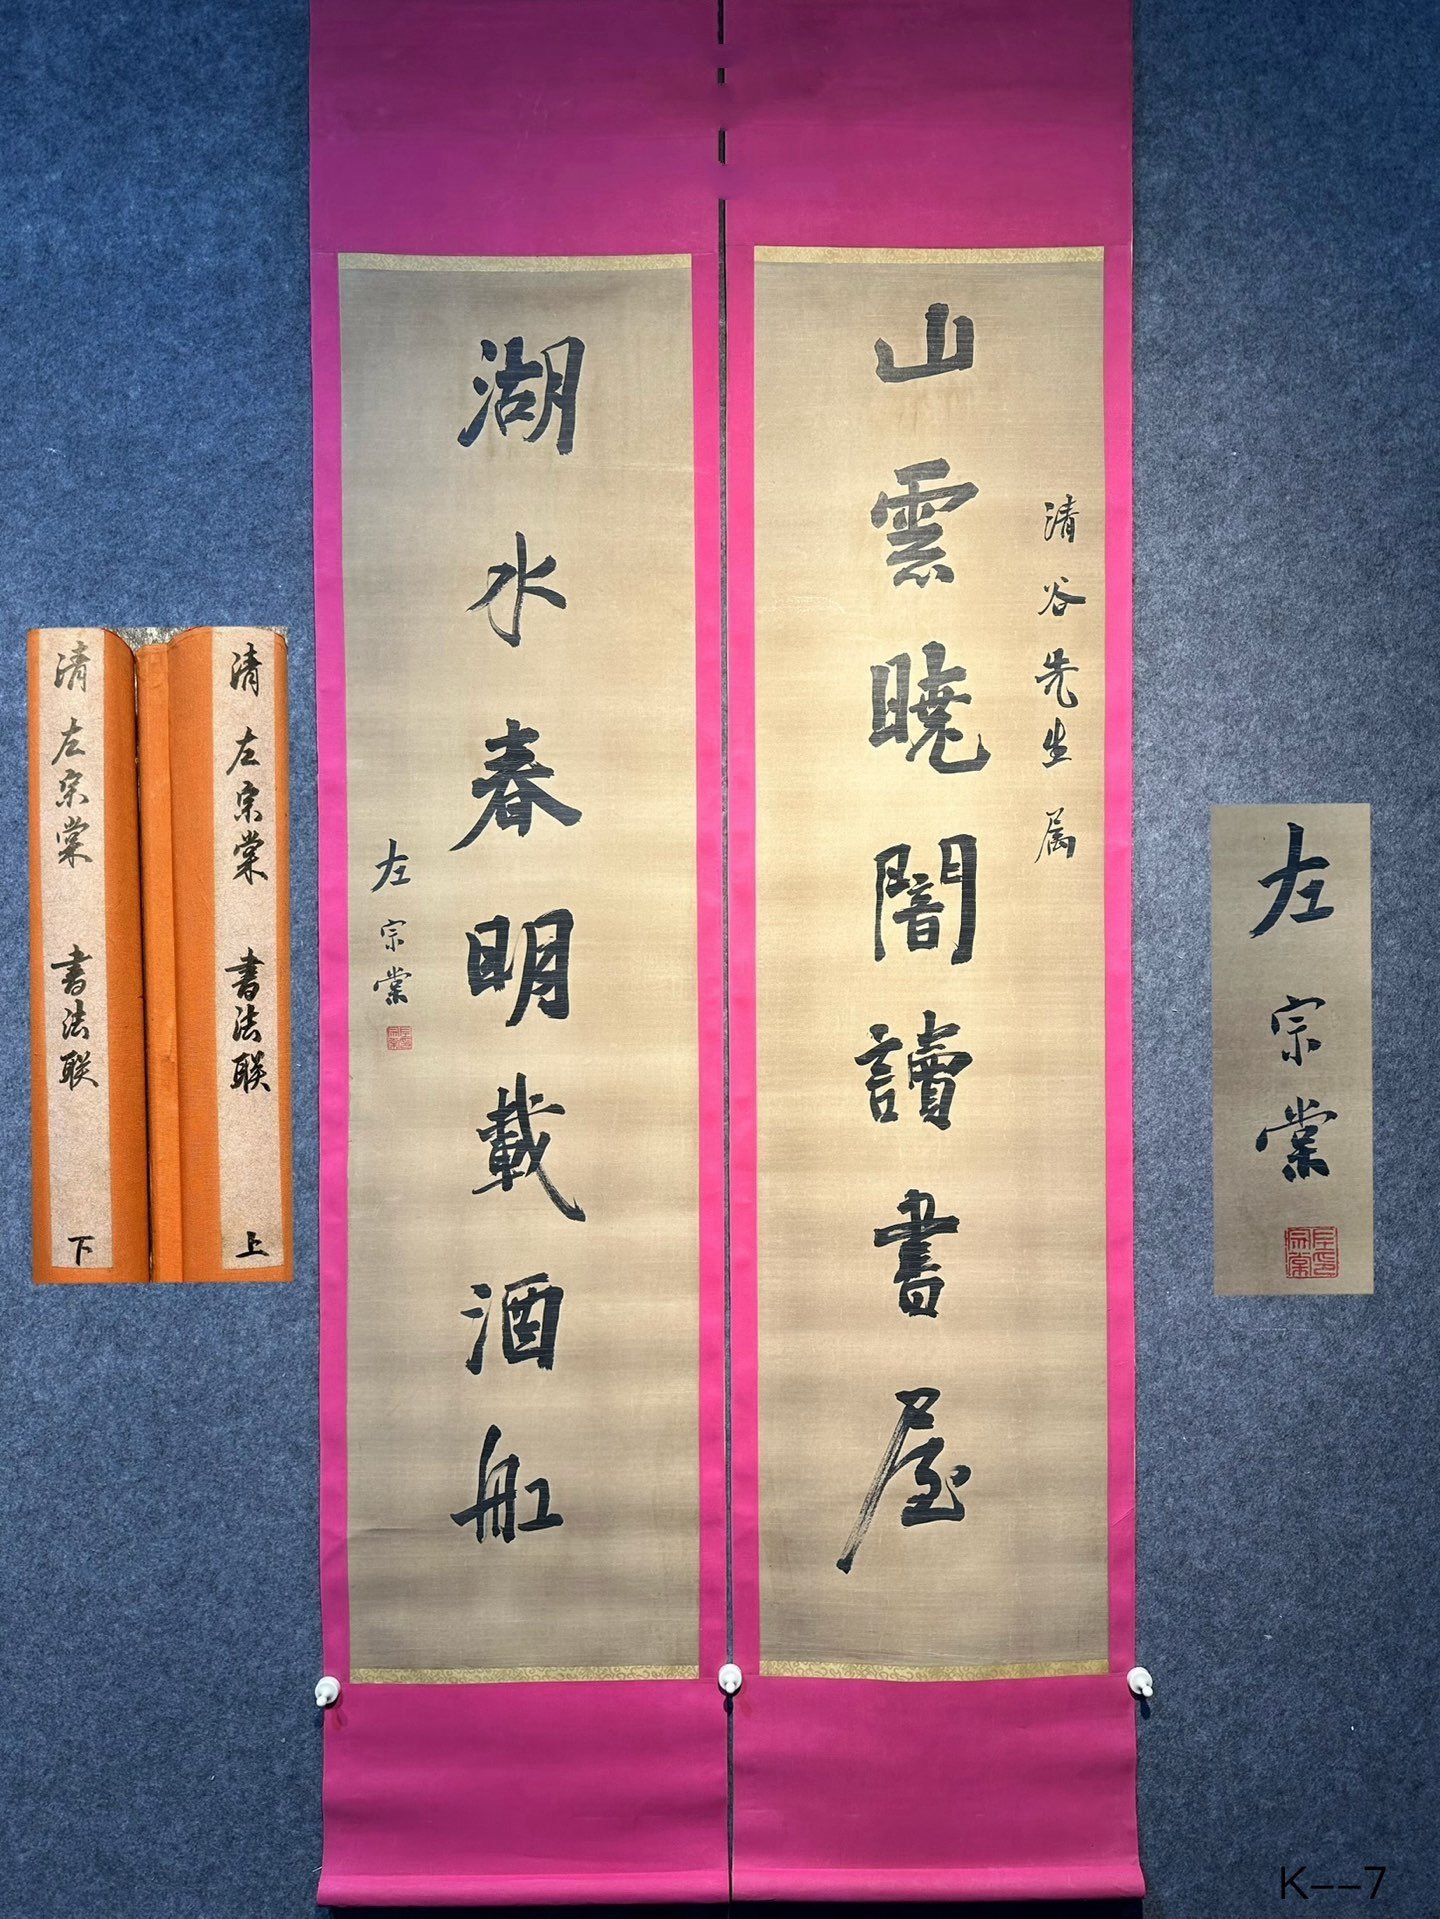 山雲曉闇讀書屋
清谷先生属
湖水春明載酒舡
左宗棠
左宗棠印
清 左宗棠 書法联 上
清 左宗棠 書法联 下
左宗棠
左宗棠印
K--7